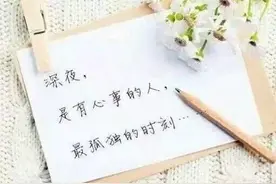 深夜，
是有心事的人，
最孤独的时刻…